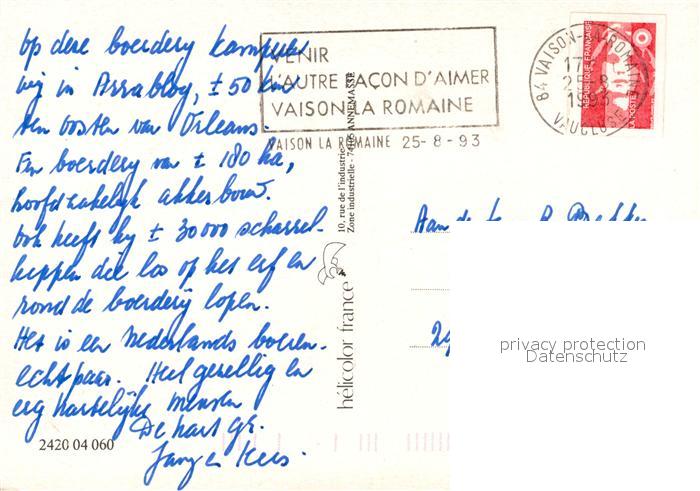 Op deze boerderij kamperen
wij in Arrabloy, ± 50 km
ten oosten van Orleans.
Een boerderij van ± 180 ha,
hoofdzakelijk akkerbouw.
Ook heeft hij ± 30000 scharrel-
kippen die los op het erf en
rond de boerderij lopen.
Het is een Nederlands boeren-
echtpaar. Heel gezellig en
erg hartelijke mensen
De hart gr.
Kees.
2420 04 060
VENIR
L'AUTRE FAÇON D'AIMER
VAISON LA ROMAINE
VAISON LA ROMAINE 25-8-93
84 VAISON-LA-ROMAINE
17
25-8
1993
VAUCLUSE
REPUBLIQUE FRANÇAISE
LA POSTE
10, rue de l'industrie
Zone industrielle - 74105 ANNEMASSE
hélicolor france
Aan de fam.
29
privacy protection
Datenschutz